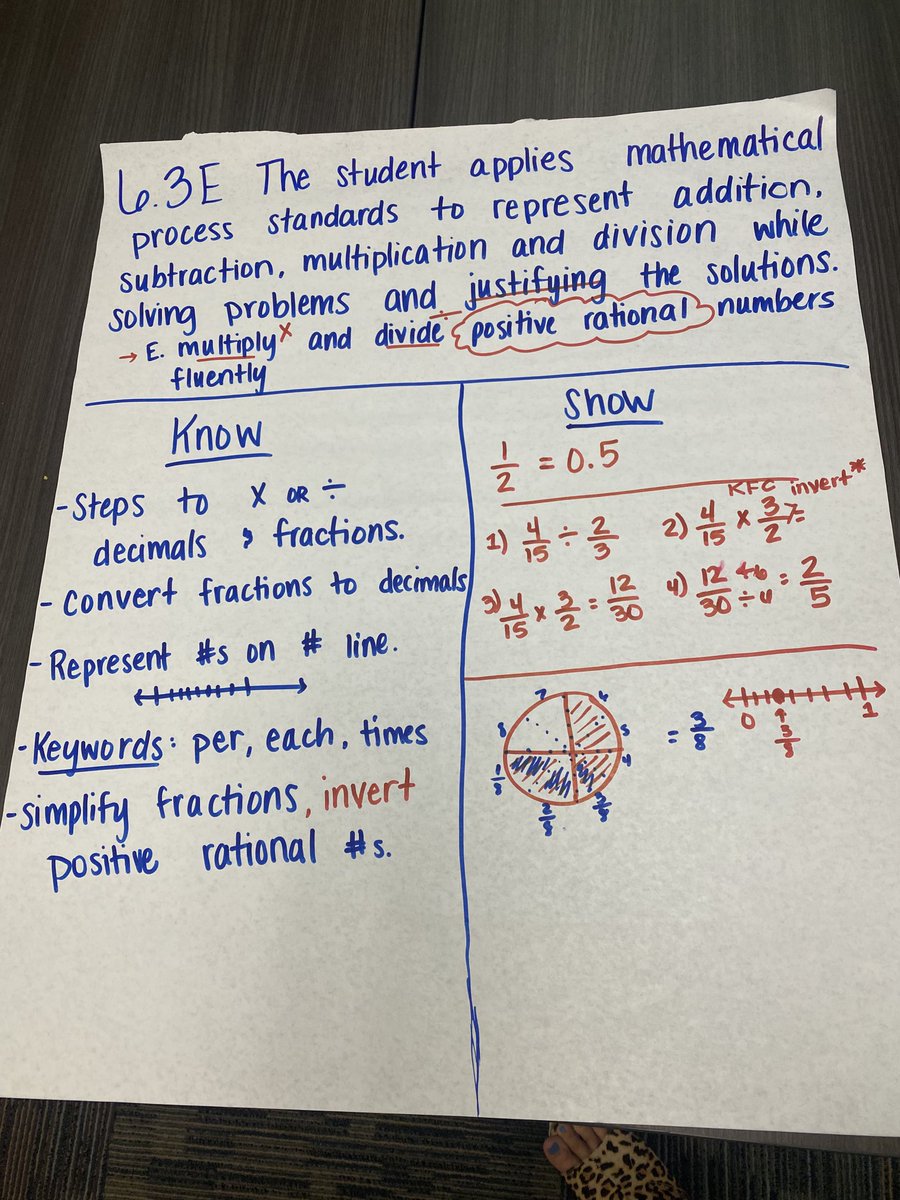 6.3E The student applies mathematical
process standards to represent addition,
subtraction, multiplication and division while
solving problems and justifying the solutions.
→ E. multiply x and divide ÷ positive rational numbers
fluently
Know
- Steps to x OR ÷
decimals & fractions.
- Convert fractions to decimals
- Represent #s on # line.
- Keywords: per, each, times
- simplify fractions, invert
positive rational #s.
Show
1/2 = 0.5
KFC invert*
1) 4/15 ÷ 2/3
2) 4/15 x 3/2 =
3) 4/15 x 3/2 = 12/30
4) 12/30 ÷ 6 ÷ 4 = 2/5
7
8
5
4
1/8
2/8
3/8
= 3/8
0 1
3/8